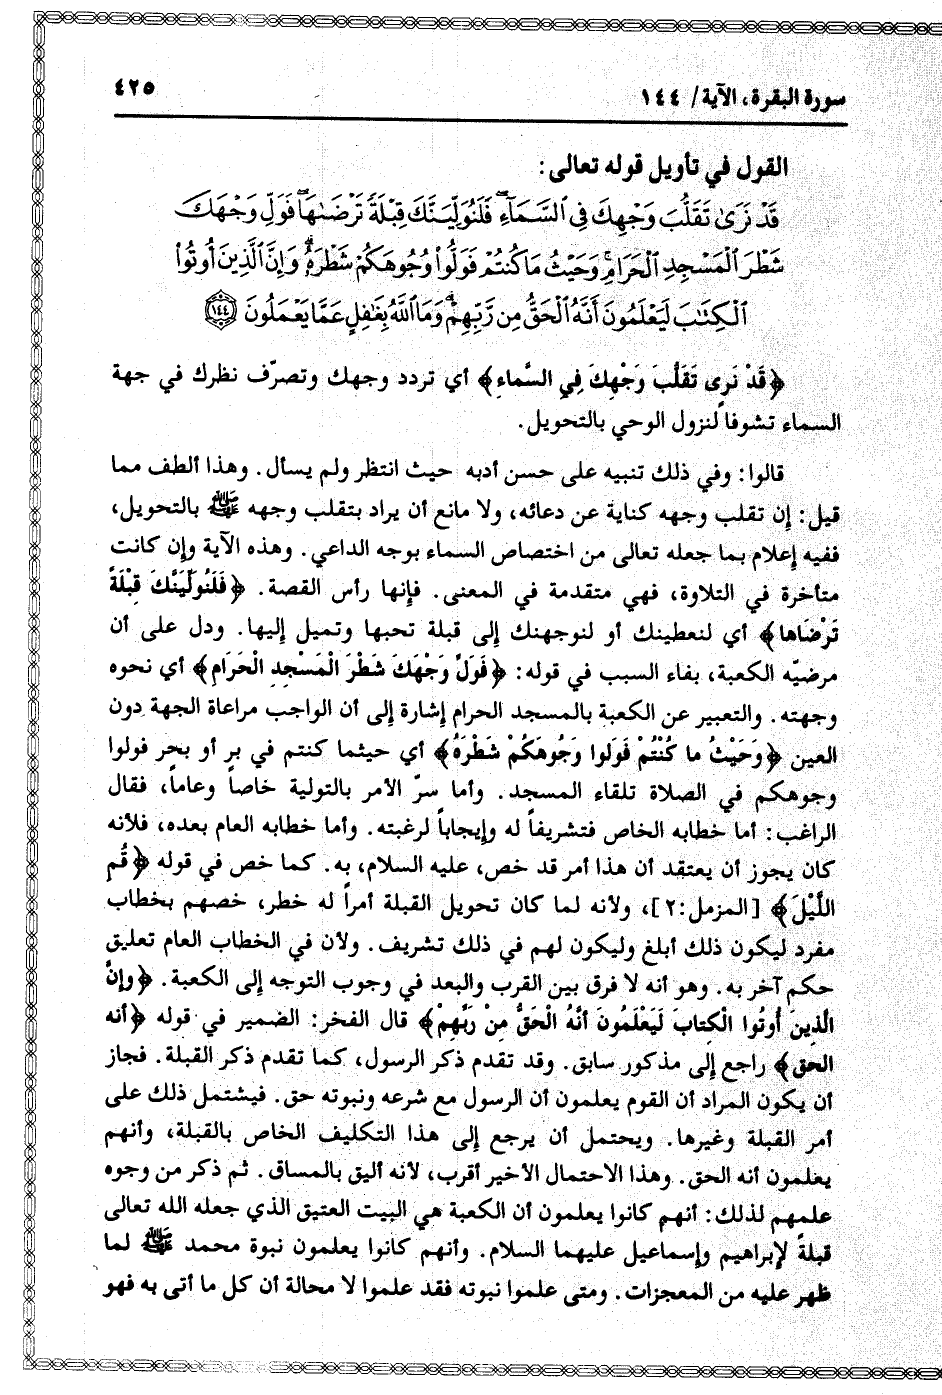 سورة البقرة، الآية/ ١٤٤
٤٢٥
القول في تأويل قوله تعالى:
قَدْ نَرَىٰ تَقَلُّبَ وَجْهِكَ فِي السَّمَآءِ ۖ فَلَنُوَلِّيَنَّكَ قِبْلَةً تَرْضَىٰهَا ۚ فَوَلِّ وَجْهَكَ
شَطْرَ الْمَسْجِدِ الْحَرَامِ ۚ وَحَيْثُ مَا كُنتُمْ فَوَلُّوا۟ وُجُوهَكُمْ شَطْرَهُۥ ۗ وَإِنَّ الَّذِينَ أُوتُوا۟
الْكِتَٰبَ لَيَعْلَمُونَ أَنَّهُ الْحَقُّ مِن رَّبِّهِمْ ۗ وَمَا اللَّهُ بِغَٰفِلٍ عَمَّا يَعْمَلُونَ ١٤٤
﴿قَدْ نَرى تَقَلُّبَ وَجْهِكَ فِي السَّماءِ﴾ أي تردد وجهك وتصرّف نظرك في جهة
السماء تشوفاً لنزول الوحي بالتحويل.
قالوا: وفي ذلك تنبيه على حسن أدبه حيث انتظر ولم يسأل. وهذا ألطف مما
قيل: إن تقلب وجهه كناية عن دعائه، ولا مانع أن يراد بتقلب وجهه ﷺ بالتحويل،
ففيه إعلام بما جعله تعالى من اختصاص السماء بوجه الداعي. وهذه الآية وإن كانت
متأخرة في التلاوة، فهي متقدمة في المعنى. فإنها رأس القصة. ﴿فَلَنُوَلِّيَنَّكَ قِبْلَةً
تَرْضَاها﴾ أي لنعطينك أو لنوجهنك إلى قبلة تحبها وتميل إليها. ودل على أن
مرضيّه الكعبة، بفاء السبب في قوله: ﴿فَوَلِّ وَجْهَكَ شَطْرَ الْمَسْجِدِ الْحَرَامِ﴾ أي نحوه
وجهته. والتعبير عن الكعبة بالمسجد الحرام إشارة إلى أن الواجب مراعاة الجهة دون
العين ﴿وَحَيْثُ ما كُنْتُمْ فَوَلُوا وَجُوهَكُمْ شَطْرَهُ﴾ أي حيثما كنتم في بر أو بحر فولوا
وجوهكم في الصلاة تلقاء المسجد. وأما سرّ الأمر بالتولية خاصاً وعاماً، فقال
الراغب: أما خطابه الخاص فتشريفاً له وإيجاباً لرغبته. وأما خطابه العام بعده، فلأنه
كان يجوز أن يعتقد أن هذا أمر قد خص، عليه السلام، به. كما خص في قوله ﴿قُمِ
اللَّيْلَ﴾ [المزمل:٢]، ولأنه لما كان تحويل القبلة أمراً له خطر، خصهم بخطاب
مفرد ليكون ذلك أبلغ وليكون لهم في ذلك تشريف. ولأن في الخطاب العام تعليق
حكم آخر به. وهو أنه لا فرق بين القرب والبعد في وجوب التوجه إلى الكعبة. ﴿وإِنَّ
الَّذِينَ أُوتُوا الْكِتابَ لَيَعْلَمُونَ أَنَّهُ الْحَقُّ مِنْ رَبِّهِمْ﴾ قال الفخر: الضمير في قوله ﴿أنه
الحق﴾ راجع إلى مذكور سابق. وقد تقدم ذكر الرسول، كما تقدم ذكر القبلة. فجاز
أن يكون المراد أن القوم يعلمون أن الرسول مع شرعه ونبوته حق. فيشتمل ذلك على
أمر القبلة وغيرها. ويحتمل أن يرجع إلى هذا التكليف الخاص بالقبلة، وأنهم
يعلمون أنه الحق. وهذا الاحتمال الأخير أقرب، لأنه أليق بالمساق. ثم ذكر من وجوه
علمهم لذلك: أنهم كانوا يعلمون أن الكعبة هي البيت العتيق الذي جعله الله تعالى
قبلةً لإبراهيم وإسماعيل عليهما السلام. وأنهم كانوا يعلمون نبوة محمد ﷺ لما
ظهر عليه من المعجزات. ومتى علموا نبوته فقد علموا لا محالة أن كل ما أتى به فهو